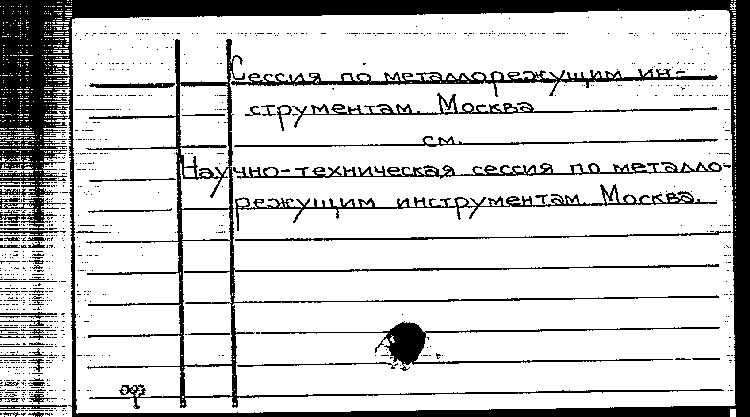 Сессия по металлорежущим ин-
струментам. Москва
см.
Научно-техническая сессия по металло-
режущим инструментам. Москва.